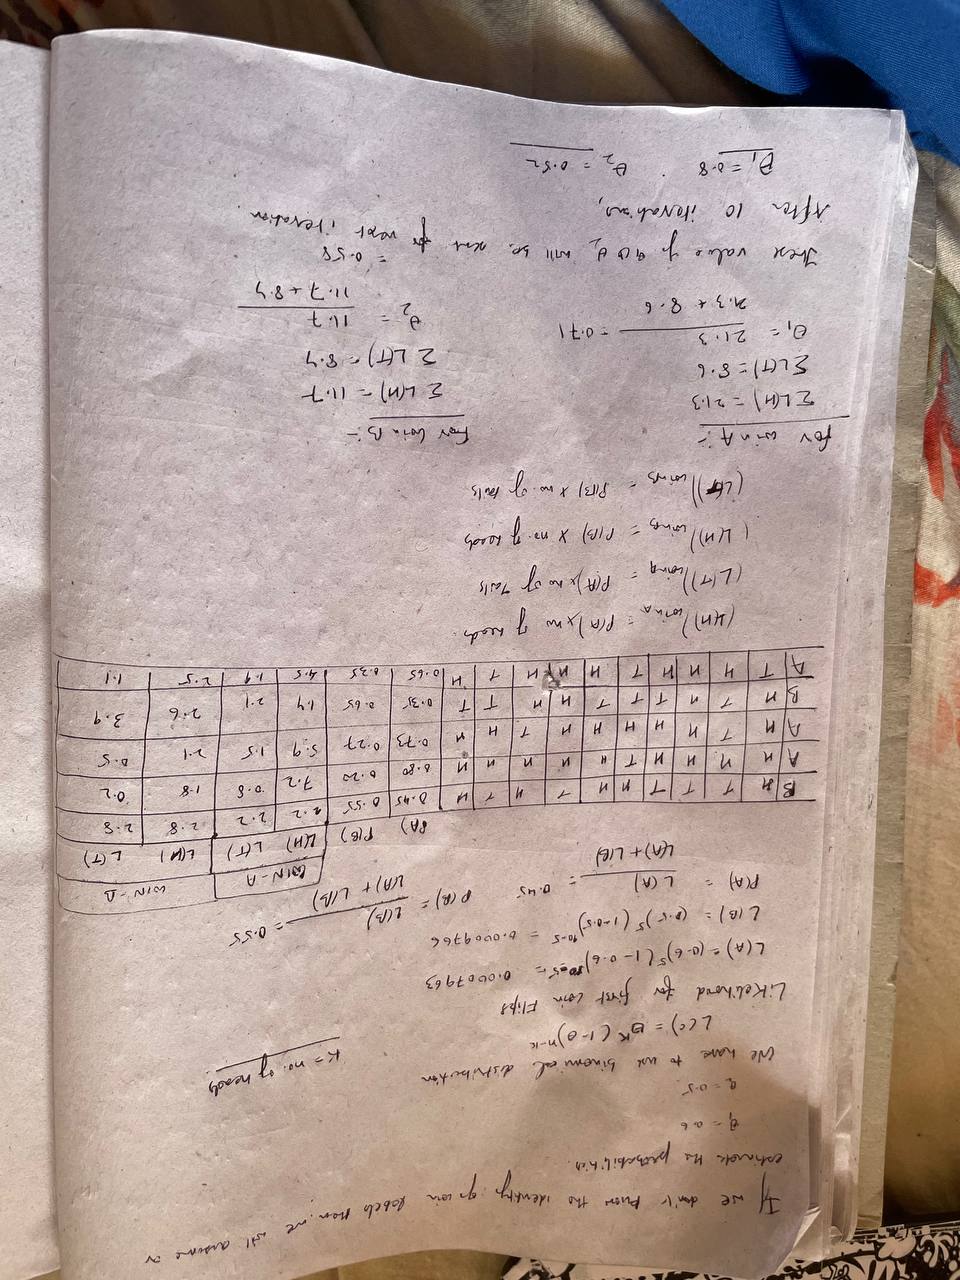 If we don't know the identity of coin labels then we will assume or
estimate the probabilities.
θ₁ = 0.6
θ₂ = 0.5
We have to use binomial distribution
L(C) = θᴷ (1-θ)ⁿ⁻ᴷ
K = no. of heads
Likelihood for first coin Flips
L(A) = (0.6)⁵ (1-0.6)¹⁰⁻⁵ = 0.0007963
L(B) = (0.5)⁵ (1-0.5)¹⁰⁻⁵ = 0.0009766
P(A) = L(A) / L(A) + L(B) = 0.45 P(B) = L(B) / L(A) + L(B) = 0.55
COIN-A COIN-B
P(A) P(B) L(H) L(T) L(H) L(T)
B H T T T H H T H T H 0.45 0.55 2.2 2.2 2.8 2.8
A H H H H T H H H H H 0.80 0.20 7.2 0.8 1.8 0.2
A H T H H H H H T H H 0.73 0.27 5.9 1.5 2.1 0.5
B H T H T T T H H T T 0.35 0.65 1.4 2.1 2.6 3.9
A T H H H T H H H T H 0.65 0.35 4.5 1.9 2.5 1.1
(L(H)) coin A = P(A) x no of heads.
(L(T)) coin A = P(A) x no of Tails
(L(H)) coin B = P(B) x no. of heads
(L(T)) coin B = P(B) x no. of tails
For coin A :- For coin B :-
Σ L(H) = 21.3 Σ L(H) = 11.7
Σ L(T) = 8.6 Σ L(T) = 8.4
θ₁ = 21.3 / 21.3 + 8.6 = 0.71 θ₂ = 11.7 / 11.7 + 8.4
= 0.58
These value of θ₁ & θ₂ will be sent for next iteration.
After 10 iterations,
θ₁ = 0.8 , θ₂ = 0.52